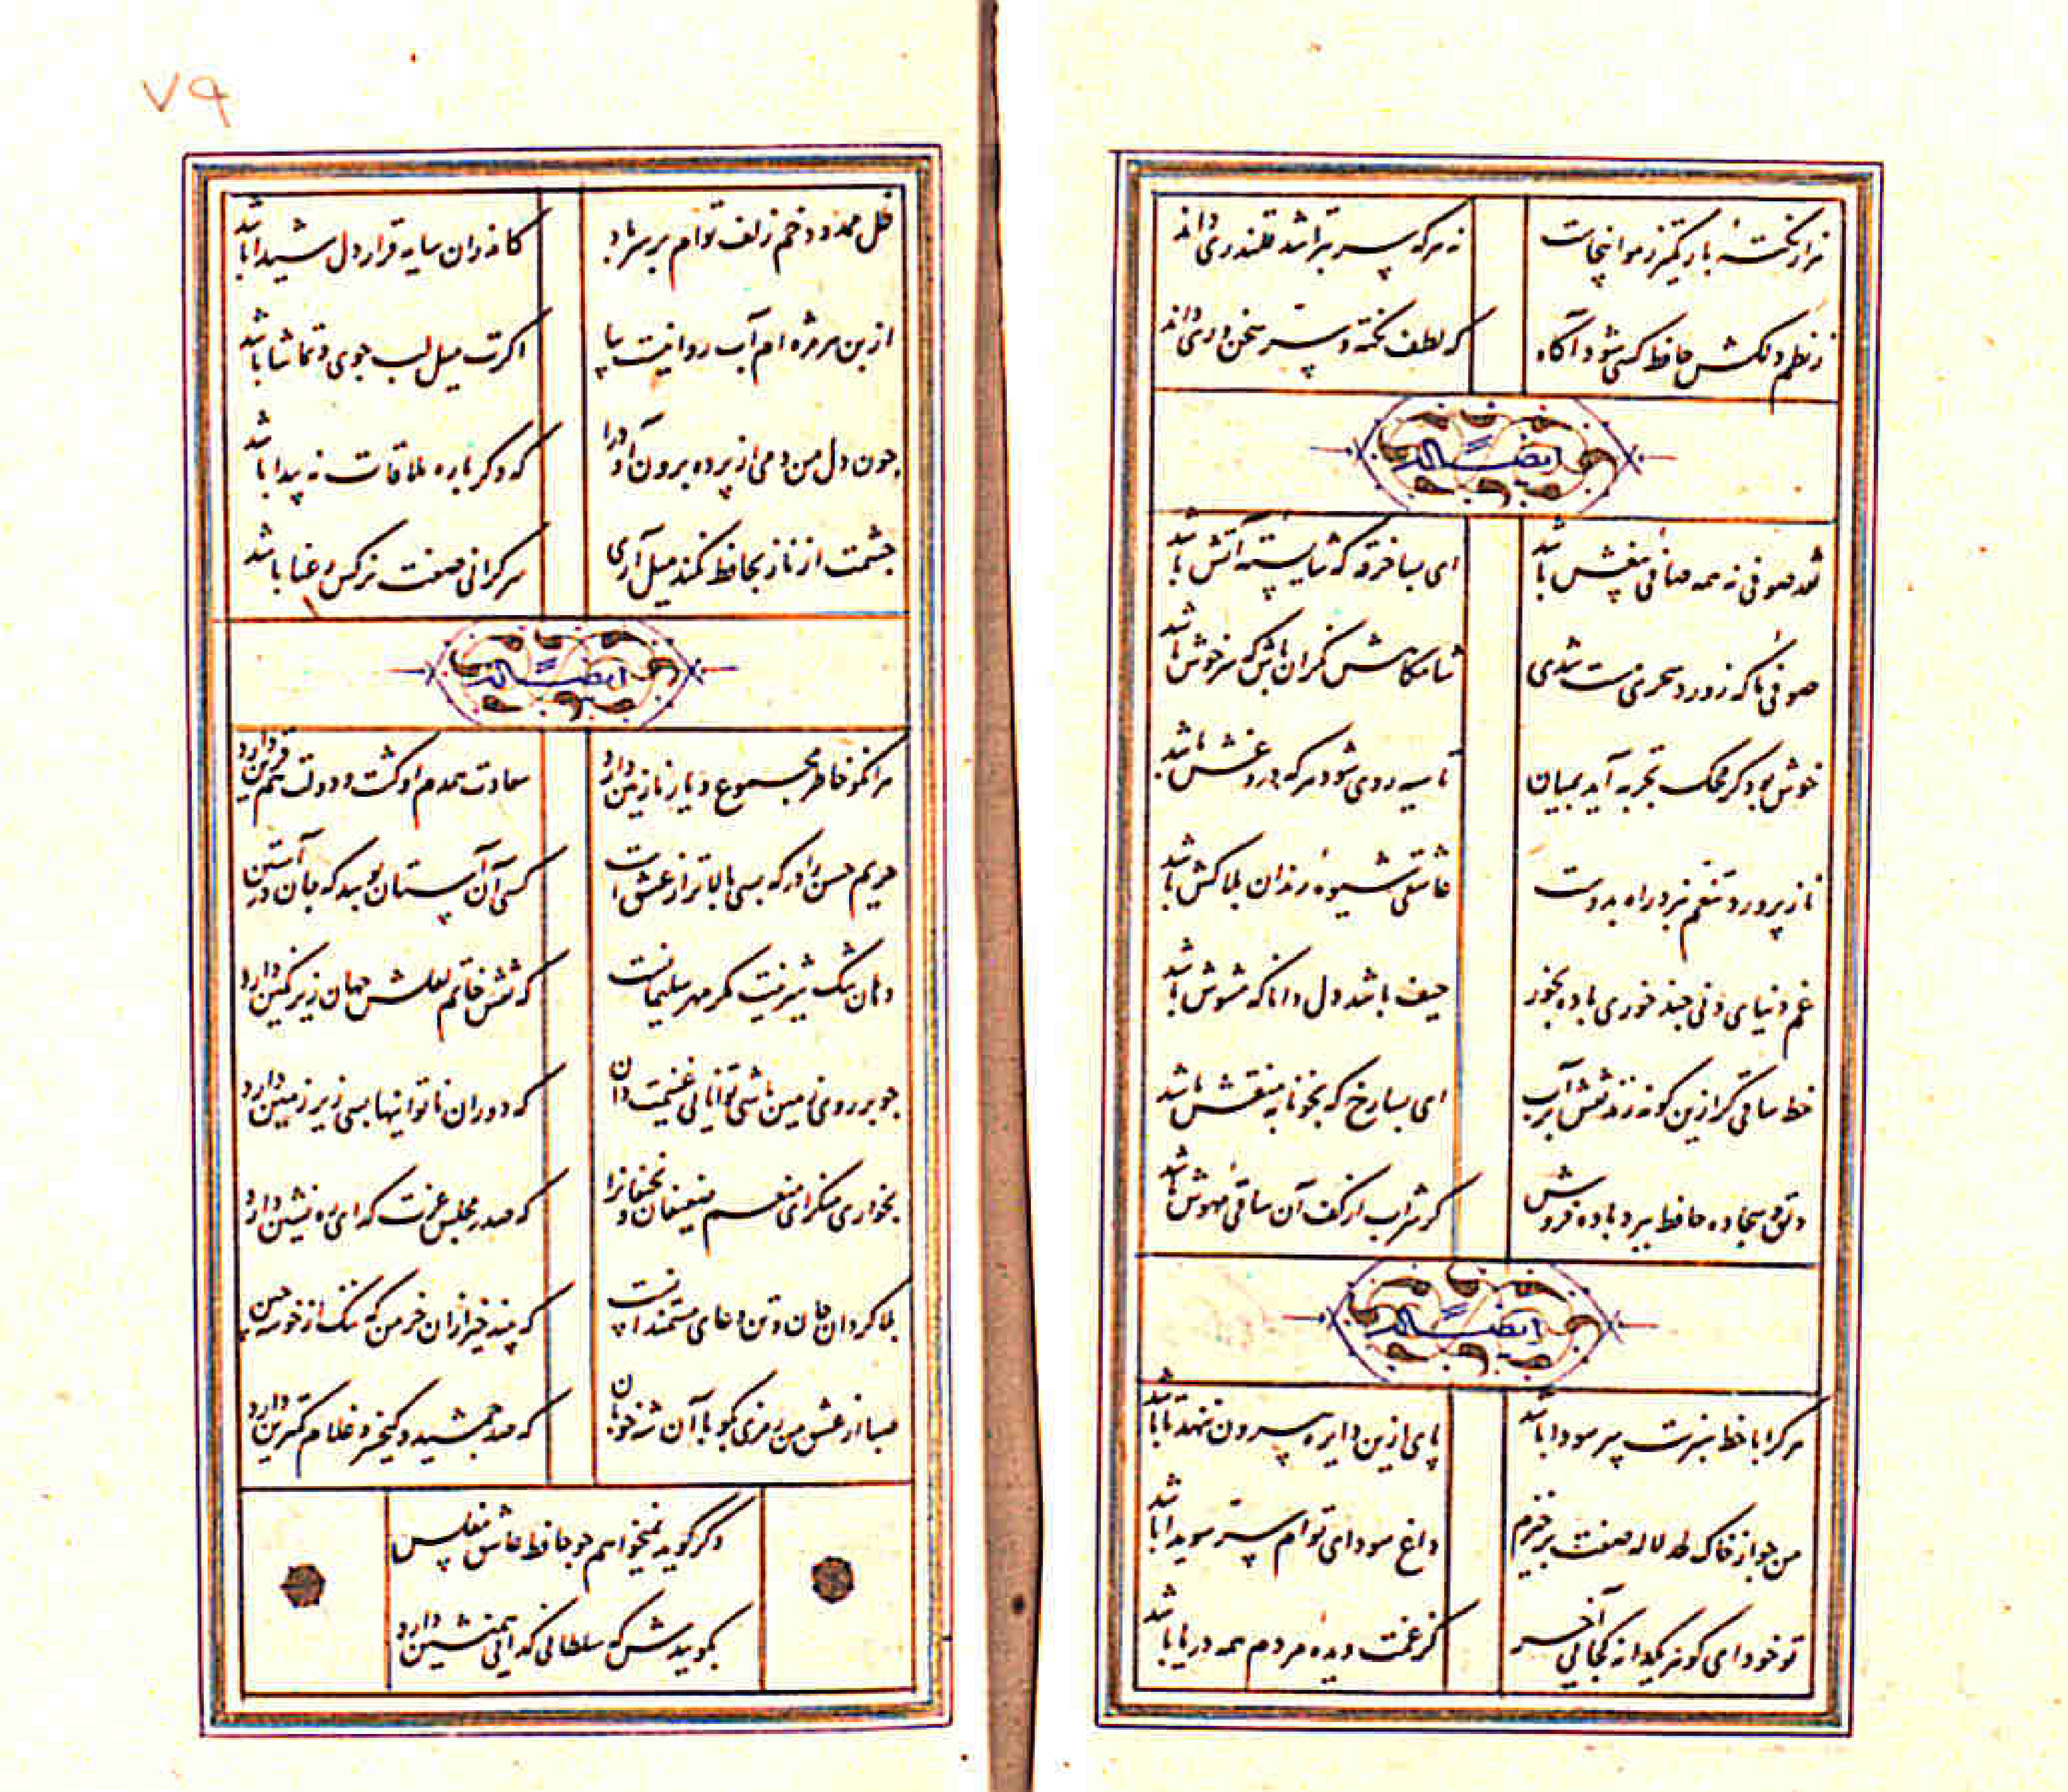 هزار نکتهٔ باریکتر ز مو اینجاست
نه هر که سر بتراشد قلندری داند
ز نظم دلکش حافظ کسی شود آگاه
که لطف نکته و سر سخن وری داند
ایضاً له
نقد صوفی نه همه صافی بیغش باشد
ای بسا خرقه که شایستهٔ آتش باشد
صوفی ما که ز ورد سحری مست شدی
شامگاهش نگران باش که سرخوش باشد
خوش بود گر محک تجربه آید بمیان
تا سیه روی شود هر که دروغش باشد
ناز پرورد تنعم نبرد راه بدوست
عاشقی شیوهٔ رندان بلاکش باشد
غم دنیای دنی چند خوری باده بخور
حیف باشد دل دانا که مشوش باشد
خط ساقی گر ازین کونه زند نقش بر آب
ای بسا رخ که بخونابه منقش باشد
دلق و سجاده حافظ ببرد باده فروش
گر شراب از کف آن ساقی مهوش باشد
ایضاً له
هر کرا با خط سبزت سر سودا باشد
پای ازین دایره بیرون ننهد تا باشد
من چو از خاک لحد لاله صفت برخیزم
داغ سودای توام سر سویدا باشد
تو خود ای گوهر یکدانه کجائی آخر
کز غمت دیدهٔ مردم همه دریا باشد
۷۹
ظل ممدود خم زلف توام بر سر باد
کاندران سایه قرار دل شیدا باشد
از بن هر مژه ام آب روانست بیا
اگرت میل لب جوی و تماشا باشد
چون دل من دمی از پرده برون آ و درا
که دگر باره ملاقات نه پیدا باشد
چشمت از ناز بحافظ نکند میل آری
سرگرانی صفت نرگس رعنا باشد
ایضاً له
هر آنکو خاطر مجموع و یار نازنین دارد
سعادت همدم او گشت و دولت هم قرین دارد
حریم حسن را درگه بسی بالاتر از عشق است
کسی آن آستان بوسد که جان در آستین دارد
دهان تنگ شیرینت مگر مهر سلیمانست
که نقش خاتم لعلش جهان زیر نگین دارد
چو بر روی زمین باشی توانائی غنیمت دان
که دوران ناتوانیها بسی زیر زمین دارد
بخواری منگر ای منعم ضعیفان و نحیفانرا
که صدر مجلس عزت گدای ره نشین دارد
بلا گردان جان و تن دعای مستمندانست
که بیند خیر ازان خرمن که ننگ از خوشه چین
صبا از عشق من رمزی بگو با آن شه خوبان
که صد جمشید و کیخسرو غلام کمترین دارد
وگر گوید نمیخواهم چو حافظ عاشق مفلس
بگوییدش که سلطانی گدائی همنشین دارد